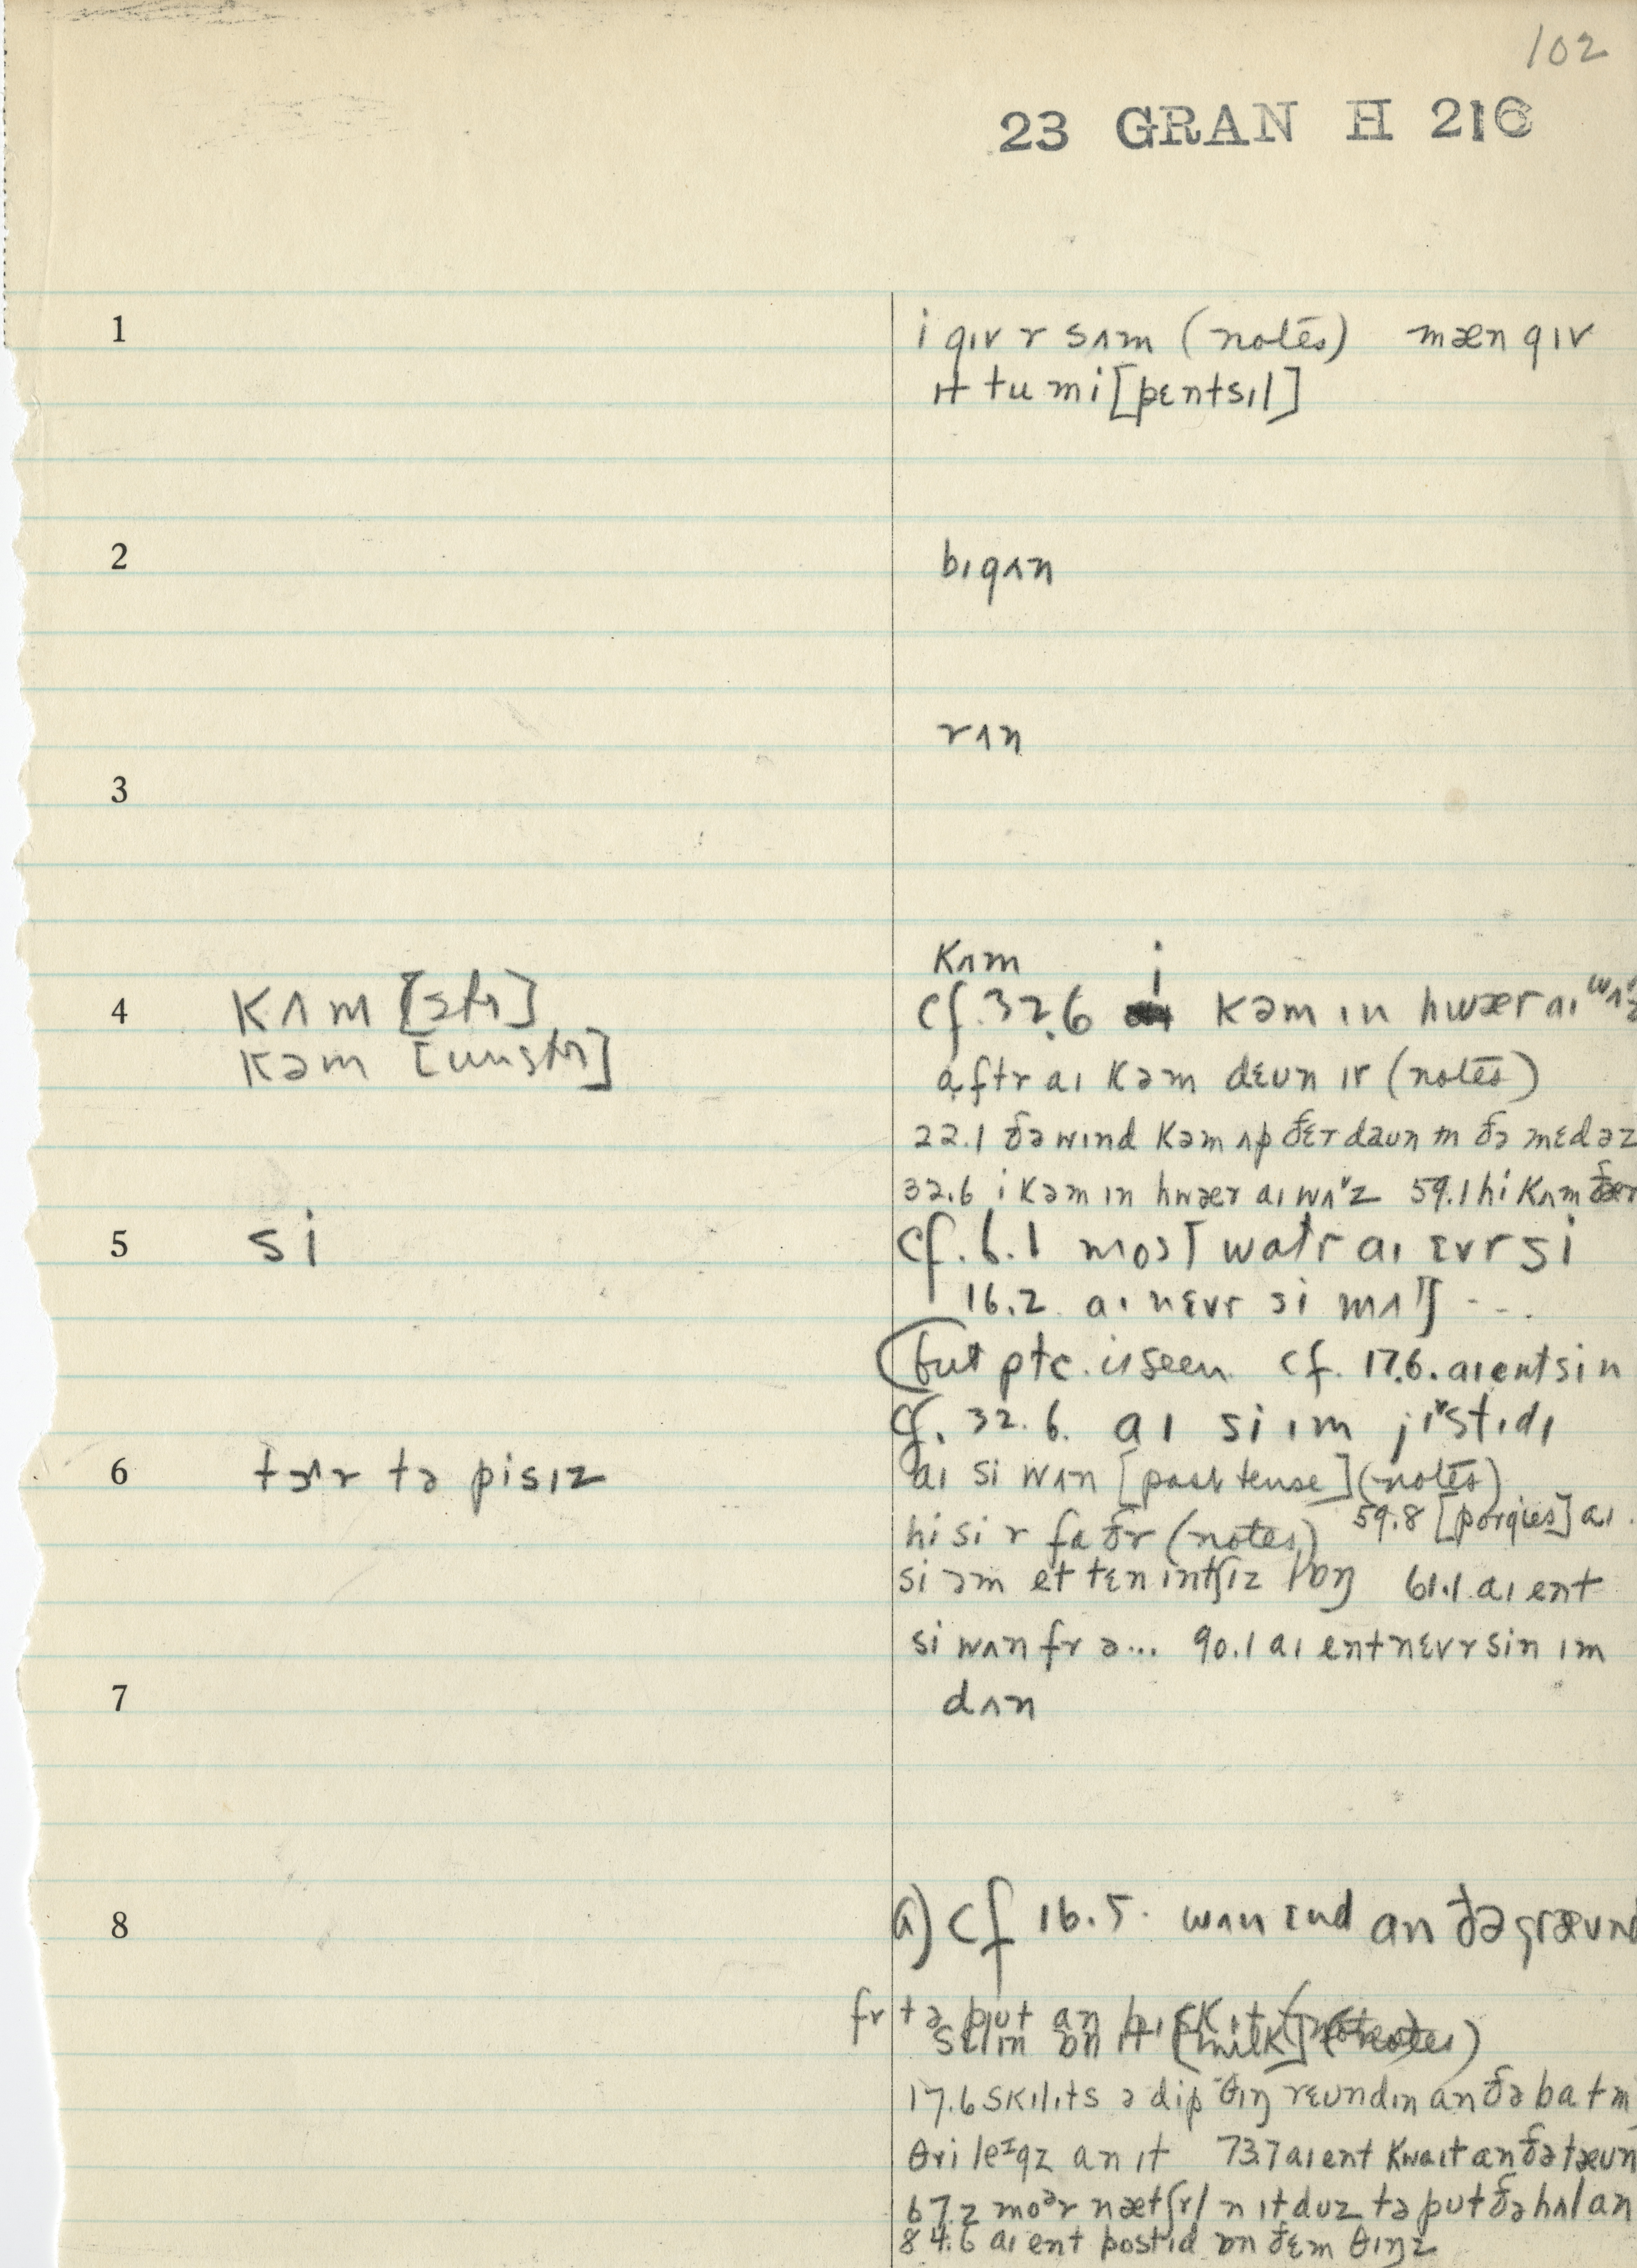 102
23 GRAN H 216
1 i gɪv r sʌm (notes) mæn gɪv
ɪt tu mi [pɛntsɪl]
2 bɪgʌn
rʌn
3
kʌm i
4 kʌm [str] cf. 32.6 kəm ɪn hwær aɪ wʌ
kəm [unstr] aftr aɪ kəm dɛun ɪr (notes)
22.1 ðə wɪnd kəm ʌp ðɛr dæun ɪn ðə mɛdəz
32.6 i kəm ɪn hwær aɪ wʌˠz 59.1 hi kʌm ðær
5 si cf. 6.1 most watr aɪ ɛvr si
16.2 aɪ nɛvr si mʌtʃ - - .
(but ptc. is seen cf. 17.6. aɪ ent sin
cf. 32.6. aɪ si ɪm jɪˠstɪdɪ
6 tɜʌr tə pisɪz aɪ si wʌn [past tense] (notes)
hi si r faðr (notes) 59.8 [porgies] aɪ
si əm et tɛn intʃɪz lɒŋ 61.1 aɪ ent
si wʌn fr ə... 90.1 aɪ ent nɛvr sin ɪm
7 dʌn
8 a) cf 16.5. wʌn ɛnd an ðə græund
fr tə put an bɪskɪt (notes)
ɒn ɪt [milk] (notes)
17.6 skɪlɪts ə dip θɪŋ rɛundɪn an ðə batm
θri leᴵgz an ɪt 73.7 aɪ ent kwaɪt an ðə tæun
67.2 moᵊr nætʃrl n ɪt duz tə put ðə hʌl an
84.6 aɪ ent postɪd ɒn ðɛm θɪŋz